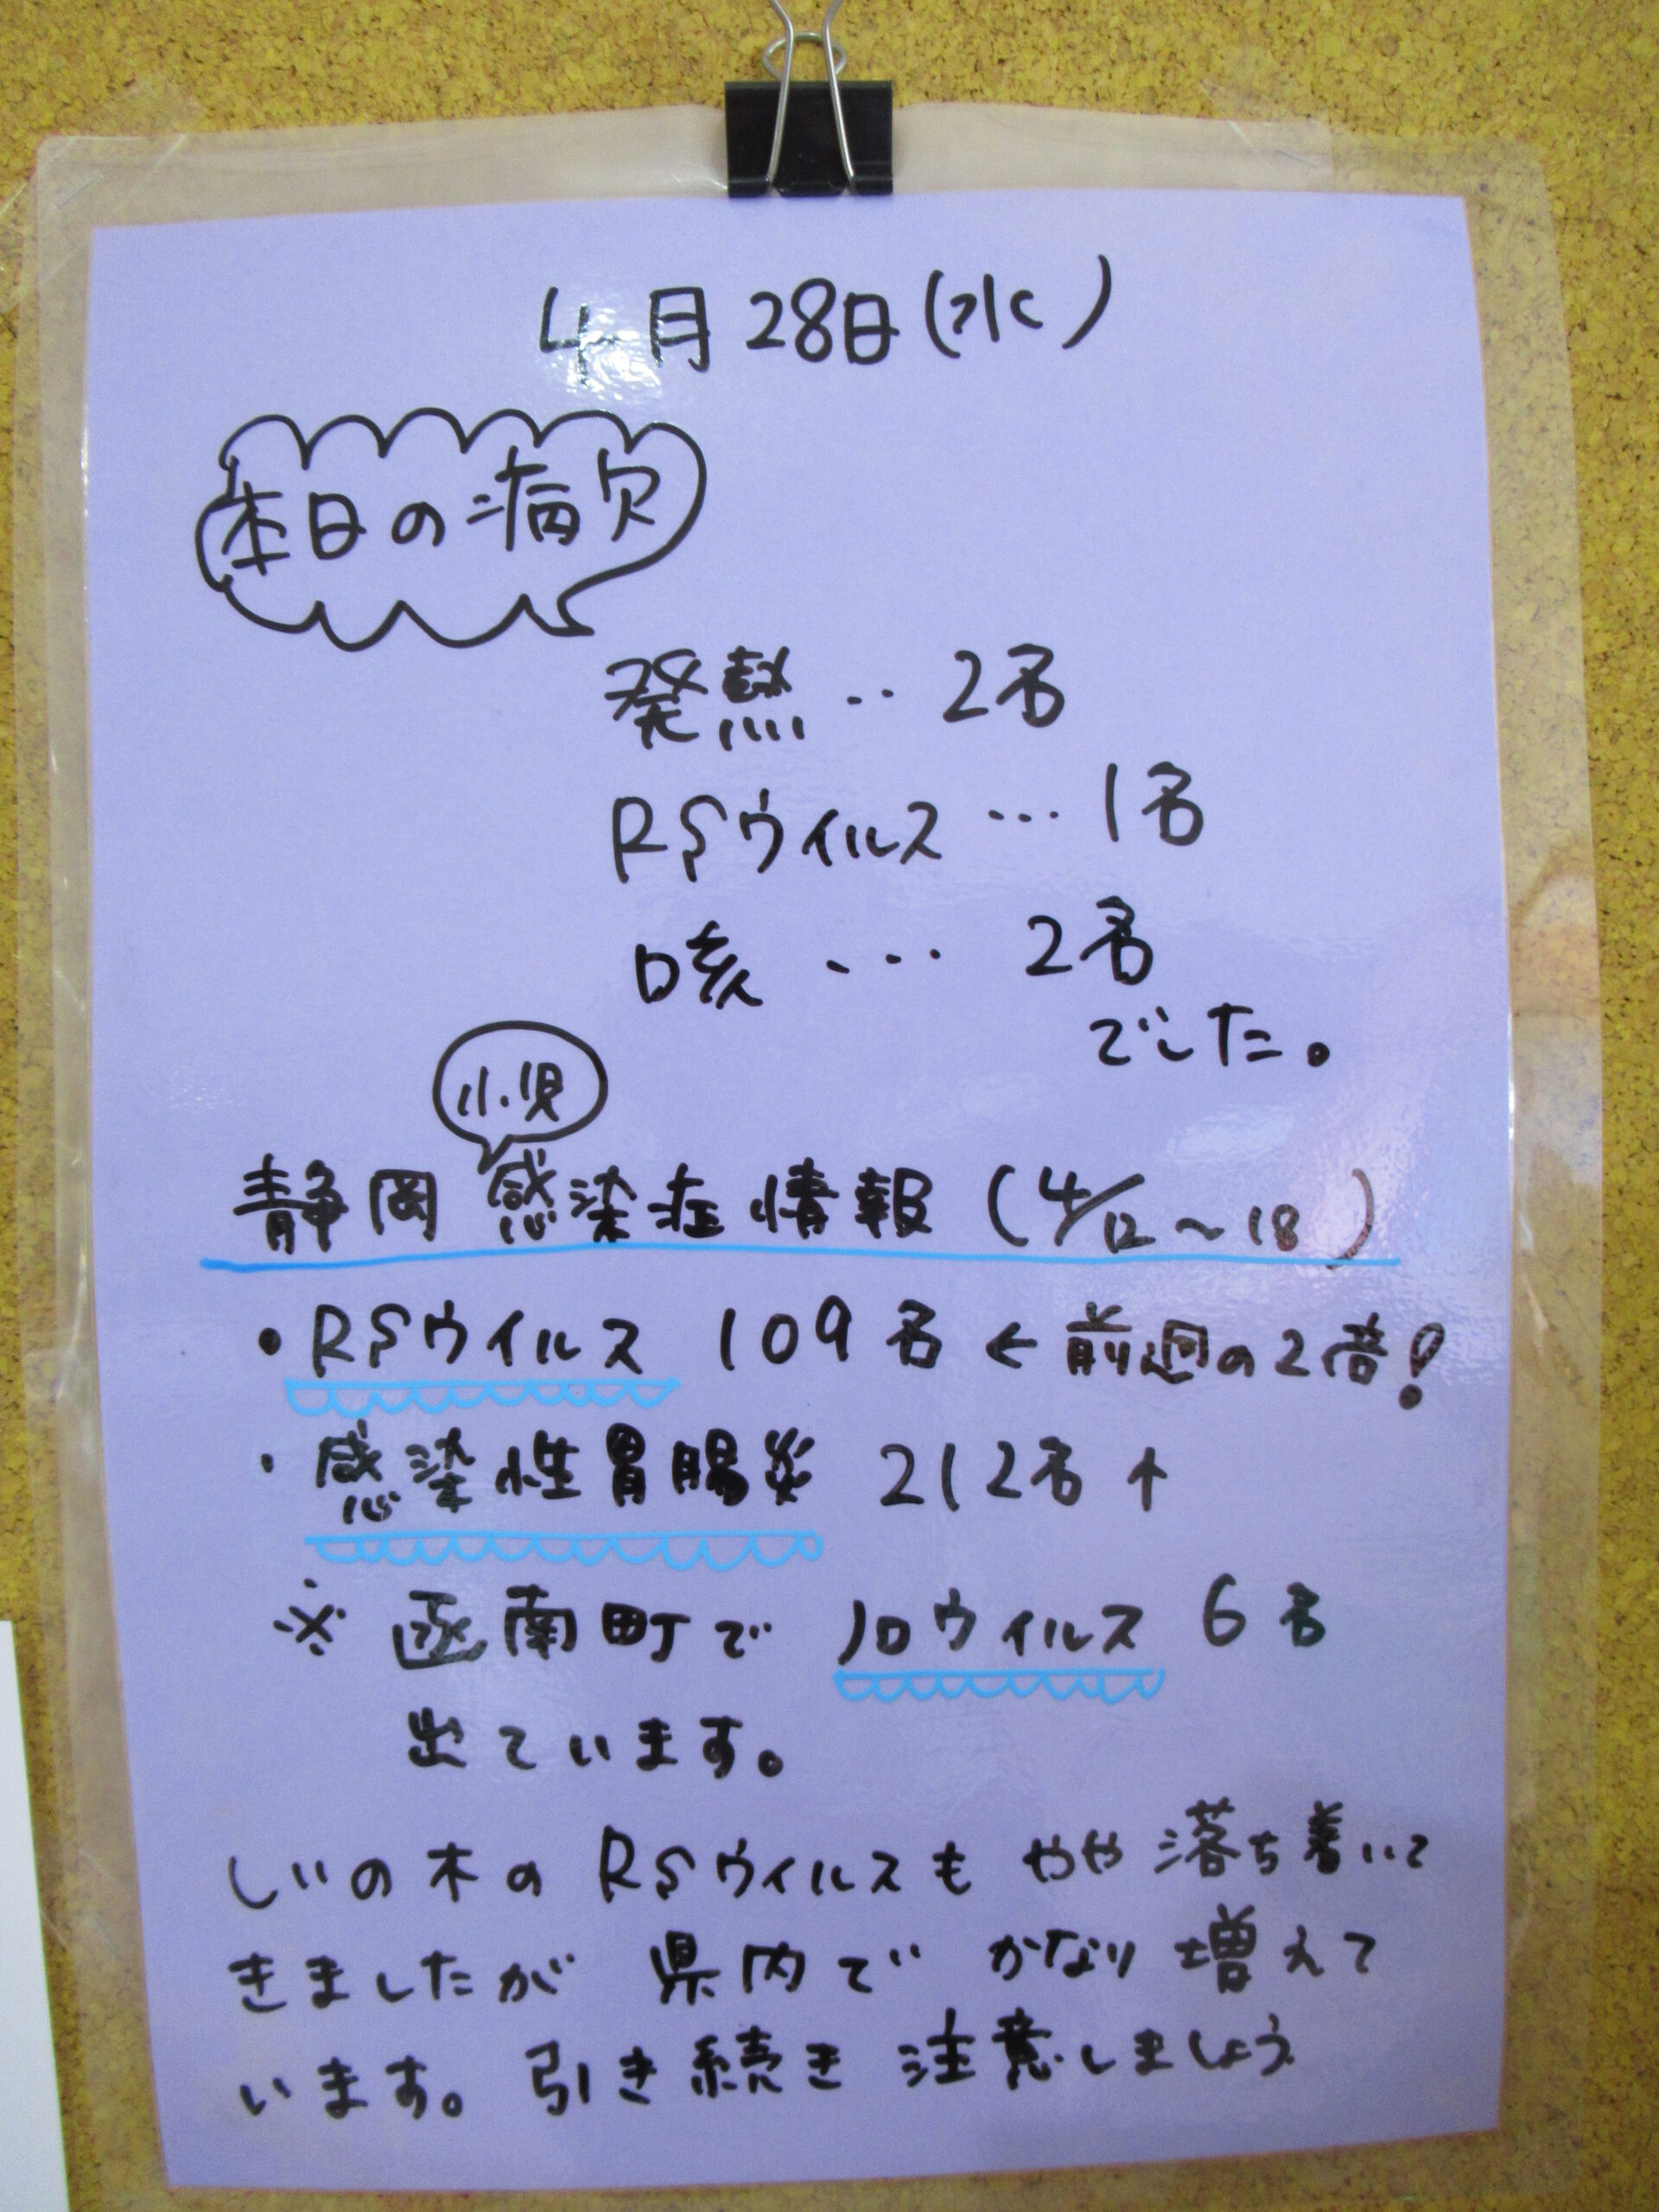 4月28日(水)
本日の病欠
発熱‥2名
RSウイルス…1名
咳…2名
でした。
小児
静岡感染症情報(4/12～18)
・RSウイルス 109名←前週の2倍!
・感染性胃腸炎 212名↑
※函南町でノロウィルス 6名
出ています。
しいの木のRSウィルスもやや落ち着いて
きましたが県内でかなり増えて
います。引き続き注意しましょう